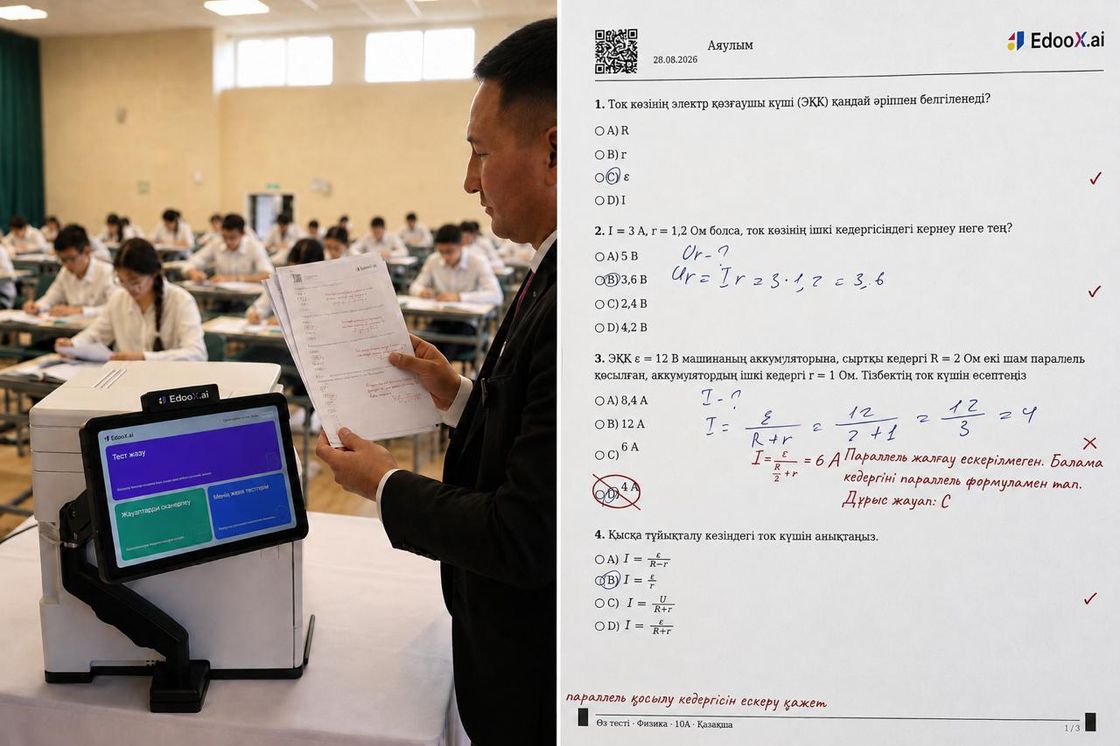 EdooX.ai
EdooX.ai
Тест жазу
Жауаптарды сканерлеу
Менің жеке тесттерім
EdooX.ai
Аяулым
28.08.2026
EdooX.ai
1. Ток көзінің электр қозғаушы күші (ЭҚК) қандай әріппен белгіленеді?
A) R
B) r
C) ε
D) I
2. I = 3 А, r = 1,2 Ом болса, ток көзінің ішкі кедергісіндегі кернеу неге тең?
A) 5 В
Ur - ?
B) 3,6 В
Ur = I r = 3·1,2 = 3,6
C) 2,4 В
D) 4,2 В
3. ЭҚК ε = 12 В машинаның аккумуляторына, сыртқы кедергі R = 2 Ом екі шам параллель
қосылған, аккумулятордың ішкі кедергі r = 1 Ом. Тізбектің ток күшін есептеңіз
A) 8,4 А
I - ?
B) 12 А
I = ε/(R+r) = 12/(2+1) = 12/3 = 4
C) 6 А
I = ε/(R/2+r) = 6 А Параллель жалғау ескерілмеген. Балама
кедергіні параллель формуламен тап.
D) 4 А
Дұрыс жауап: C
4. Қысқа тұйықталу кезіндегі ток күшін анықтаңыз.
A) I = ε/(R−r)
B) I = ε/r
C) I = U/(R+r)
D) I = ε/(R+r)
параллель қосылу кедергісін ескеру қажет
Өз тесті · Физика · 10А · Қазақша
1 / 3